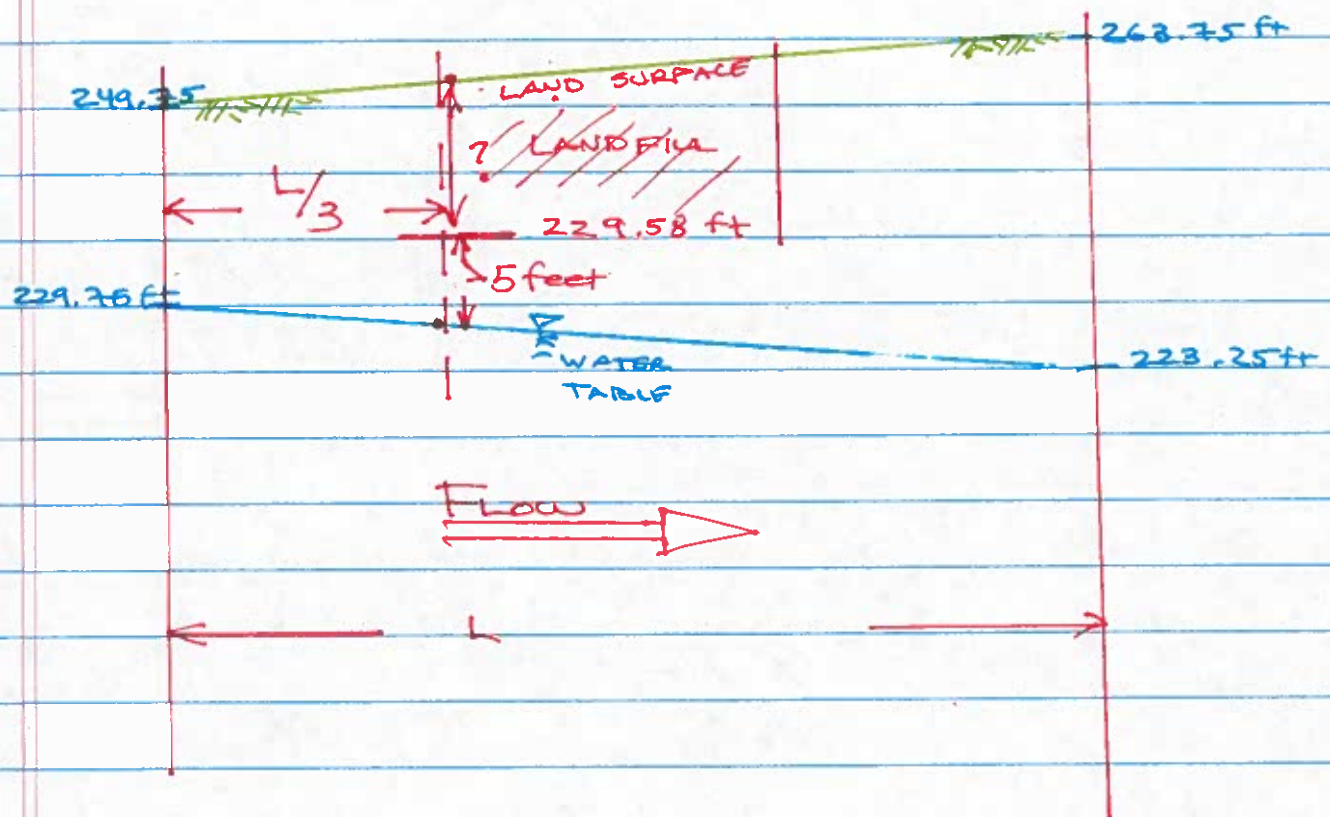 263.75 ft
249.75
LAND SURFACE
? LANDFILL
L/3
229.58 ft
5 feet
229.76 ft
WATER
TABLE
223.25 ft
FLOW
L